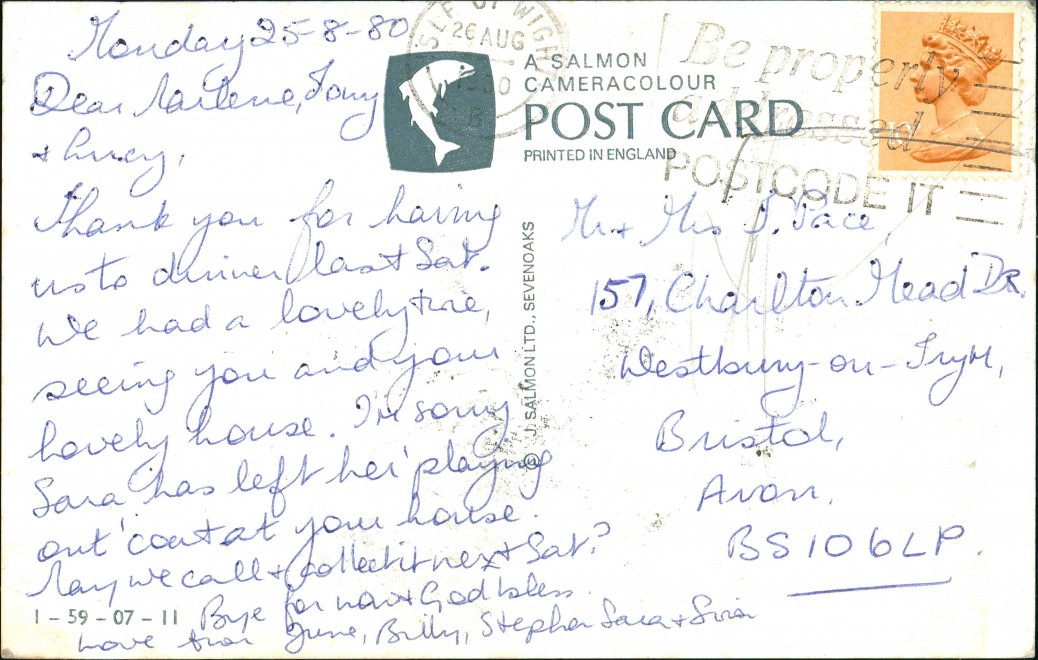 Monday 25-8-80
Dear Marlene, Tony
& Lucy,
Thank you for having
us to dinner last Sat.
We had a lovely time,
seeing you and your
lovely house. I'm sorry
Sara has left her 'playing
out' coat at your house.
May we call & collect it next Sat?
Bye for now & God bless.
Love from June, Billy, Stephen Sara &
1-59-07-11
A SALMON
CAMERACOLOUR
POST CARD
PRINTED IN ENGLAND
© J. SALMON LTD., SEVENOAKS
ISLE OF WIGHT
26 AUG
1980
B
Be properly
addressed
POSTCODE IT
Mr & Mrs Pace,
157, Charlton Mead DR.
Westbury-on-Trym,
Bristol,
Avon,
BS10 6LP.